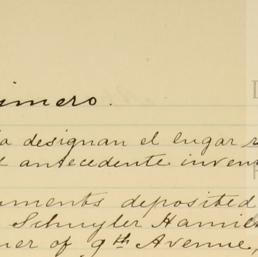 imero.
ia designan el lugar
antecedente inven
uments deposited
Schuyler Hamil
ner of 9th Avenue,